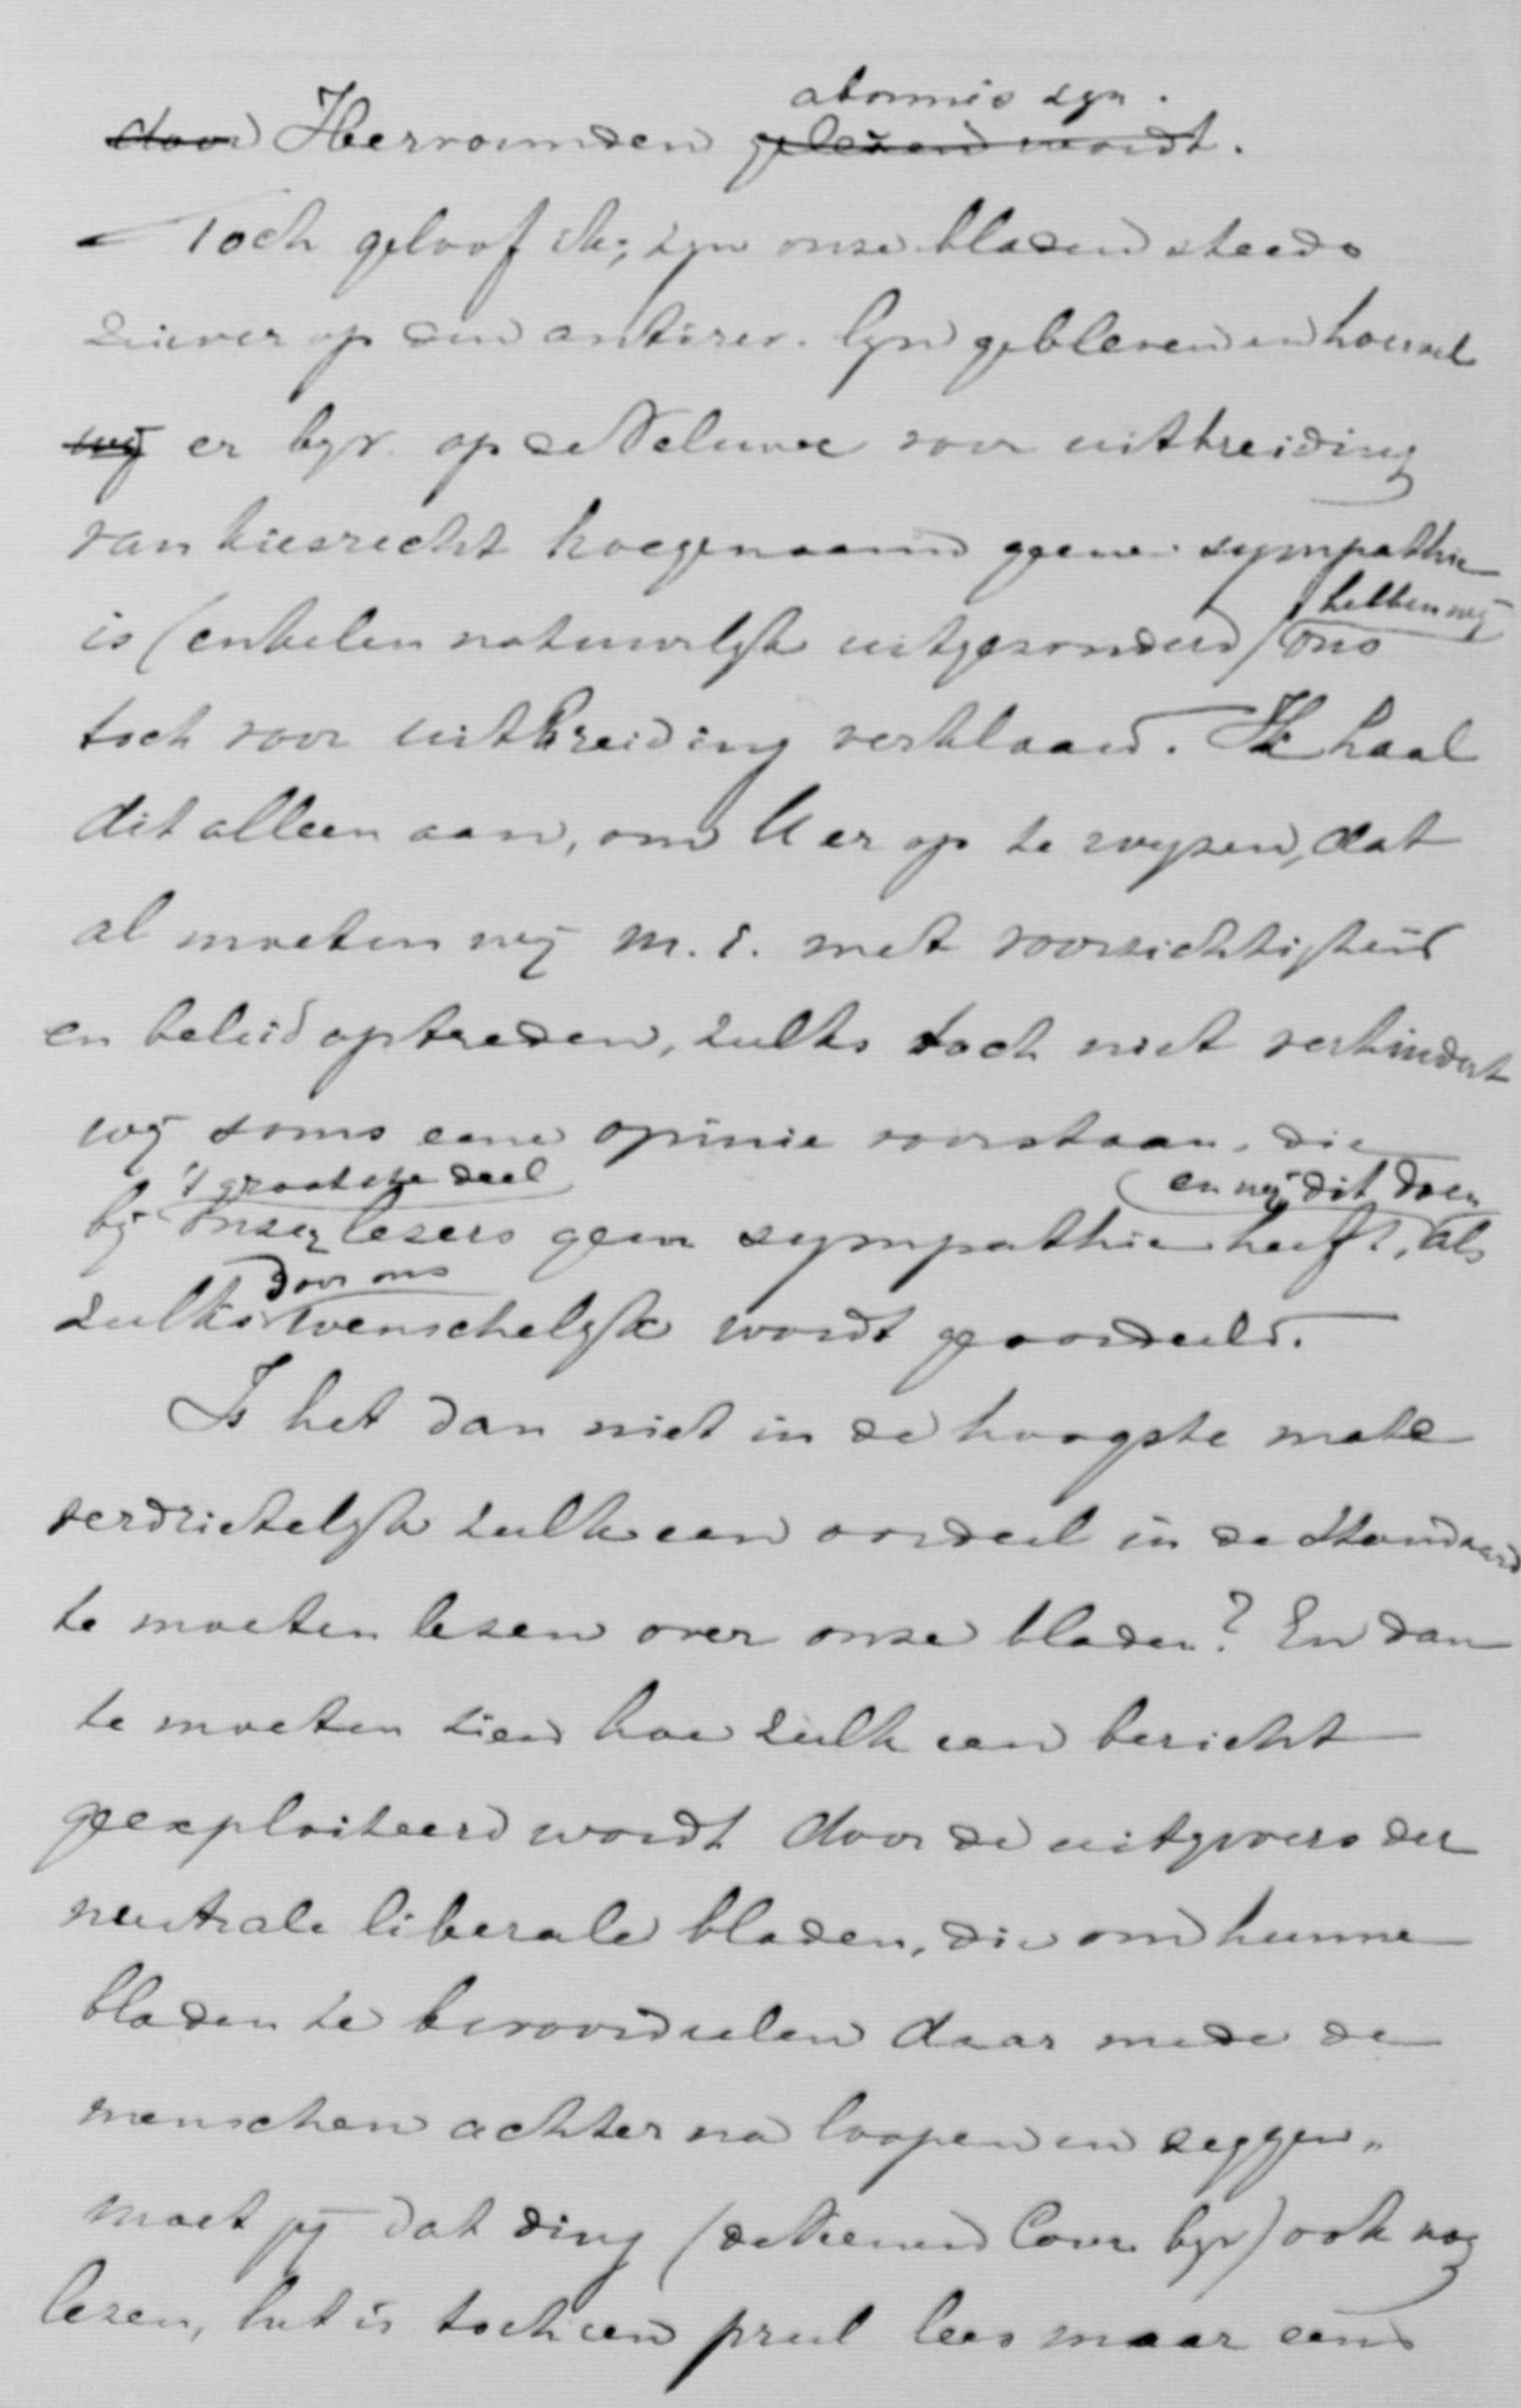 abonnés zyn.
door Hervormden gelezen wordt.
Toch geloof ik, zyn onze bladen steeds
zuiver op den antirev. lyn gebleven en hoewel
wij er byv. op de Veluwe voor uitbreiding
van kiesrecht hoegenaamd geene sympathie
is (enkelen natuurlyk uitgezonderd) hebben wij ons
toch voor uitbreiding verklaard. Ik haal
dit alleen aan, om U er op te wyzen, dat
al moeten wij m.i. met voorzichtigheid
en beleid optreden, zulks toch niet verhindert
wij soms eene opinie voorstaan, die
bij 't grootste deel onzer lezers geen sympathie heeft, en wij dit doen als
zulks door ons wenschelyk wordt geoordeeld.
Is het dan niet in de hoogste mate
verdrietelyk zulk een oordeel in de Standaard
te moeten lezen over onze bladen? En dan
te moeten zien hoe zulk een bericht
geexploiteerd wordt door de uitgevers der
neutrale liberale bladen, die om hunne
bladen te bevoordeelen daar mede de
menschen achter na loopen en zeggen „
moet jij dat ding (de Nieuwe Cour. byv) ook nog
lezen, het is toch een prul lees maar eens